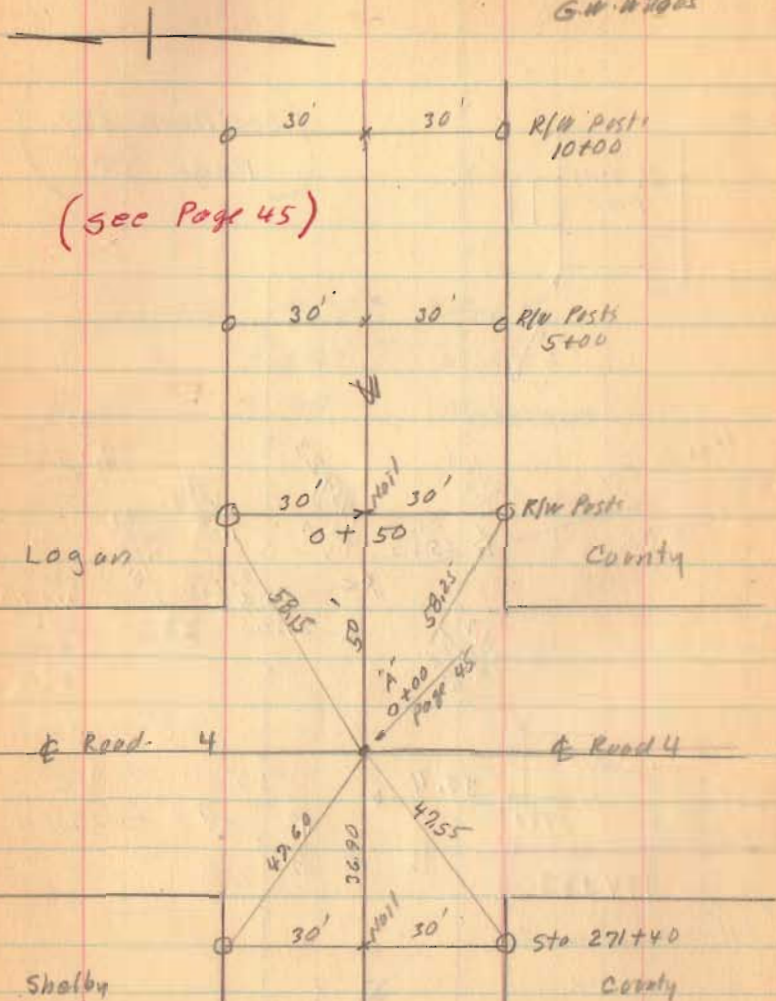 30' 30' R/W Posts
10+00
(see Page 45)
30' 30' R/W Posts
5+00
Nail
30' 30' R/W Posts
0+50
Logan County
58.15 50' 58.25
"A"
0+00
page 45
℄ Road 4 ℄ Road 4
47.60 36.90 47.55
Nail
30' 30' Sta 271+40
Shelby County